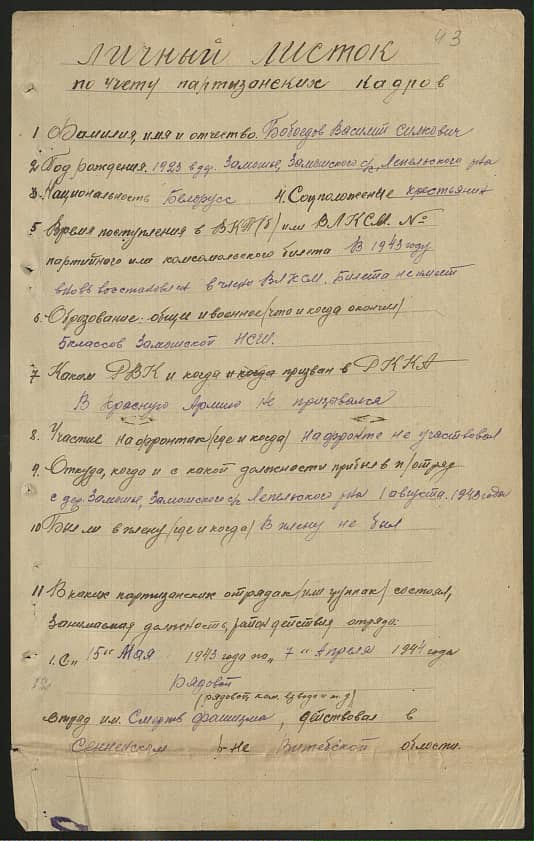 43
Личный листок
по учету партизанских кадров
1 Фамилия, имя и отчество. Бобоедов Василий Силкович
2. Год рождения. 1923 в д. Замошье, Замошского с/с, Лепельского р-на
3. Национальность Белорусс 4. Соцположение крестьянин
5 Время поступления в ВКП(б) или ВЛКСМ. №
партийного или комсомольского билета В 1943 году
вновь восстановлен в члены ВЛКСМ. Билета не имеет
6. Образование: общее и военное (что и когда окончил)
5 классов Замошской НСШ.
7 Каким РВК и когда и когда призван в РККА
В Красную Армию не призывался
8. Участие на фронтах (где и когда) на фронте не участвовал
9. Откуда, когда и с какой должности прибыл в п/отряд
с дер. Замошье, Замошского с/с Лепельского р-на 1 августа 1943 года
10 Был ли в плену (где и когда) В плену не был
11 В каких партизанских отрядах (или группах) состоял,
занимаемая должность, район действия отряда:
1. С „15" Мая 1943 года по „7" Апреля 1944 года
Рядовой
(рядовой, ком. взвода и т.д)
отряд им. Смерть фашизма, действовал в
Сенненском р-не Витебской области.